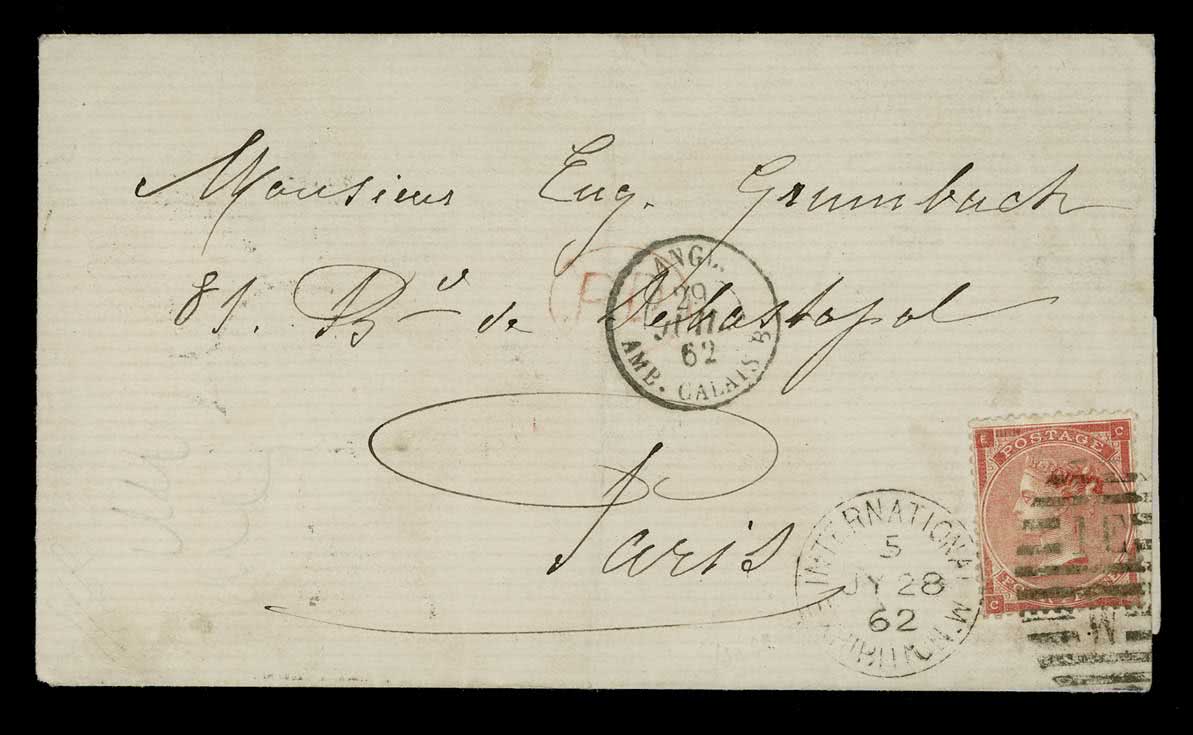 Monsieur Eug. Grumbach
81. Bd de Sebastopol
Paris
PD
ANGL.
29
JUIL
62
AMB. CALAIS B
E C
POSTAGE
C
INTERNATIONAL
5
JY 28
62
EXHIBITION. W.
1E
W